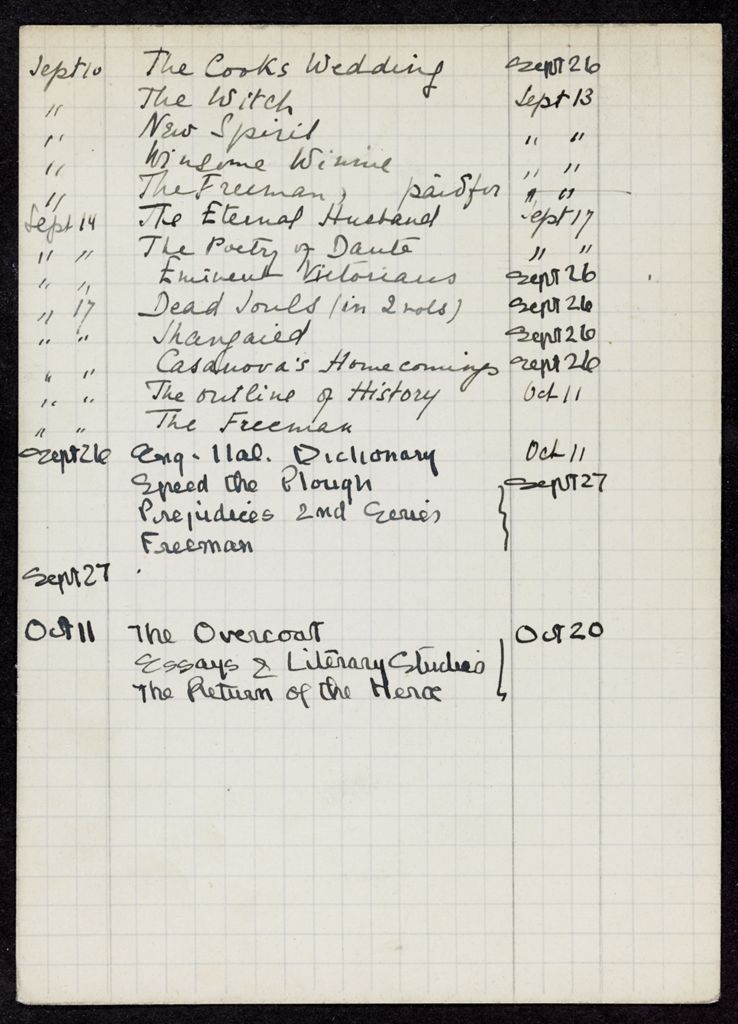 Sept 10 The Cooks Wedding Sept 26
" The Witch Sept 13
" New Spirit " "
" Winsome Winnie " "
" The Freeman, paid for " "
Sept 14 The Eternal Husband Sept 17
" " The Poetry of Dante " "
" " Eminent Victorians Sept 26
" 17 Dead Souls (in 2 vols) Sept 26
" " Shangaied Sept 26
" " Casanova's Homecoming Sept 26
" " The outline of History Oct 11
" " The Freeman
Sept 26 Eng-Ital. Dictionary Oct 11
Speed the Plough Sept 27
Prejudices 2nd Series
Freeman
Sept 27
Oct 11 The Overcoat Oct 20
Essays & Literary Studies
The Return of the Hero